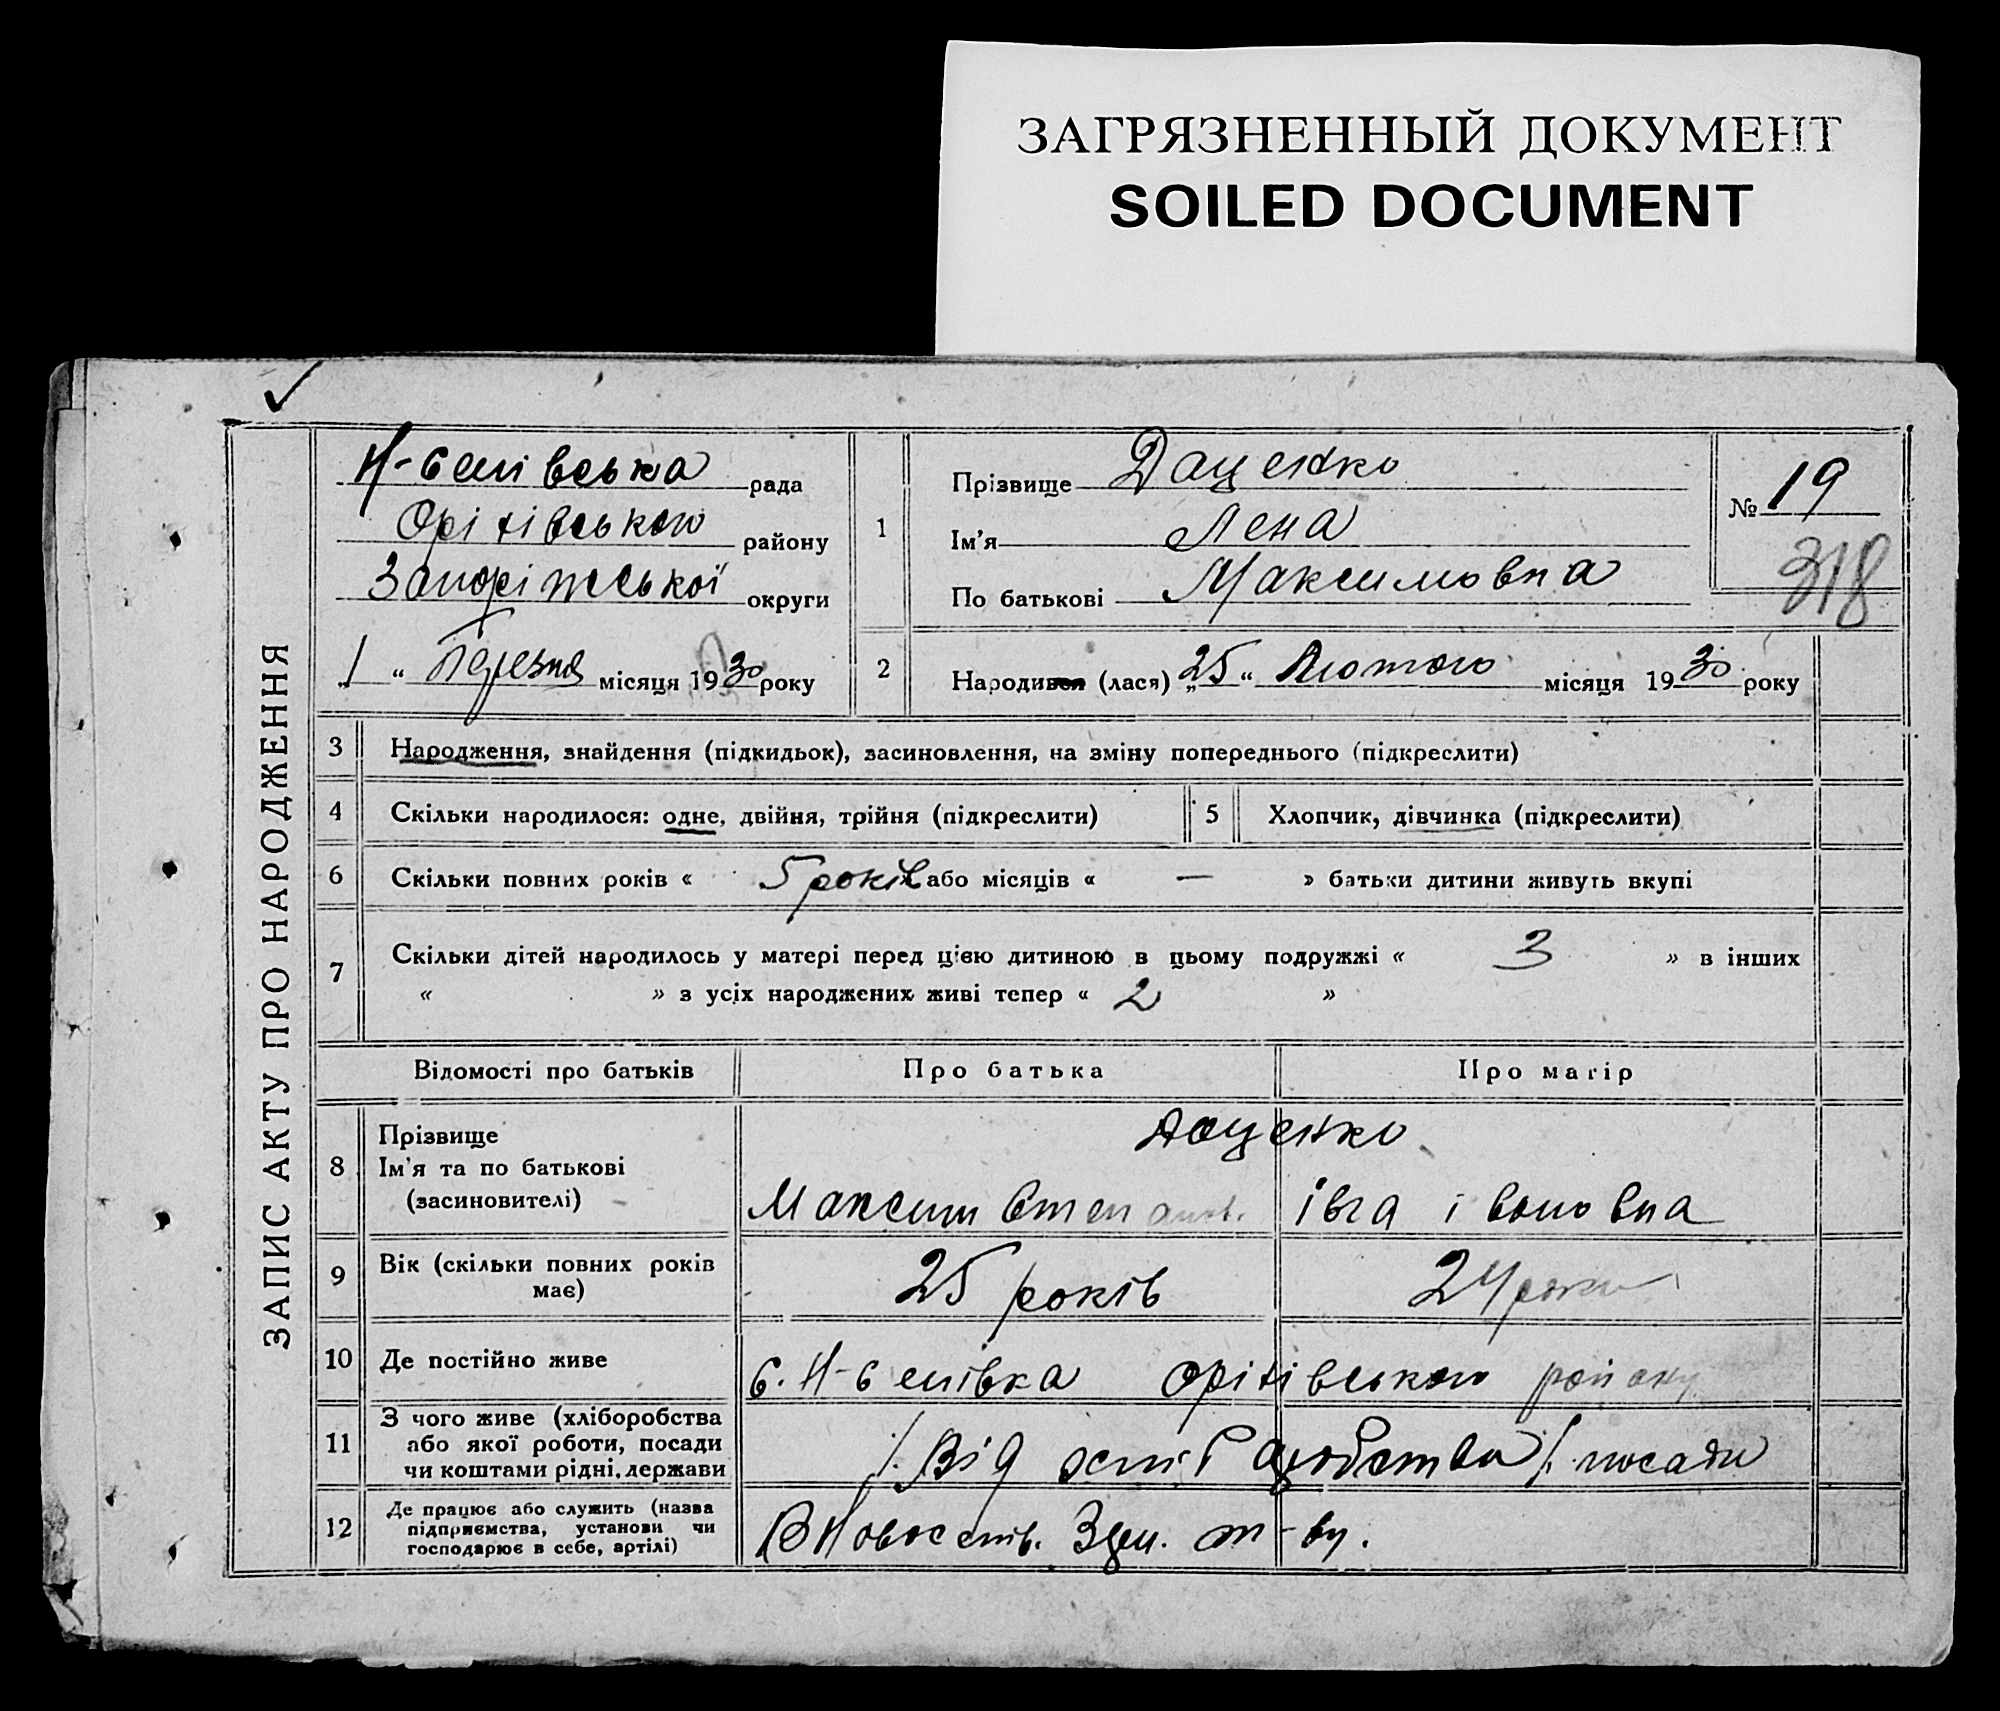 ЗАГРЯЗНЕННЫЙ ДОКУМЕНТ
SOILED DOCUMENT
ЗАПИС АКТУ ПРО НАРОДЖЕННЯ
Н-Селівська рада
Оріхівського району
Запоріжської округи
„1“ Березня місяця 1930 року
1
Прізвище Даценко
Ім'я Лена
По батькові Максимовна
№ 19
318
2 Народився (лася) „25“ Лютого місяця 1930 року
3 Народження, знайдення (підкидьок), засиновлення, на зміну попереднього (підкреслити)
4 Скільки народилося: одне, двійня, трійня (підкреслити) 5 Хлопчик, дівчинка (підкреслити)
6 Скільки повних років « 5 років або місяців « — » батьки дитини живуть вкупі
7 Скільки дітей народилось у матері перед цією дитиною в цьому подружжі « 3 » в інших
« » з усіх народжених живі тепер « 2 »
Відомості про батьків Про батька Про матір
8 Прізвище
Ім'я та по батькові
(засиновителі)
Даценко
Максим Степанов. Івга івановна
9 Вік (скільки повних років
має)
25 років 24 роки
10 Де постійно живе с. Н-Селівка Оріхівського району
11 З чого живе (хліборобства
або якої роботи, посади
чи коштами рідні, держави
Від посади
12 Де працює або служить (назва
підприємства, установи чи
господарює в себе, артілі)
В Новоселів. т-ву.